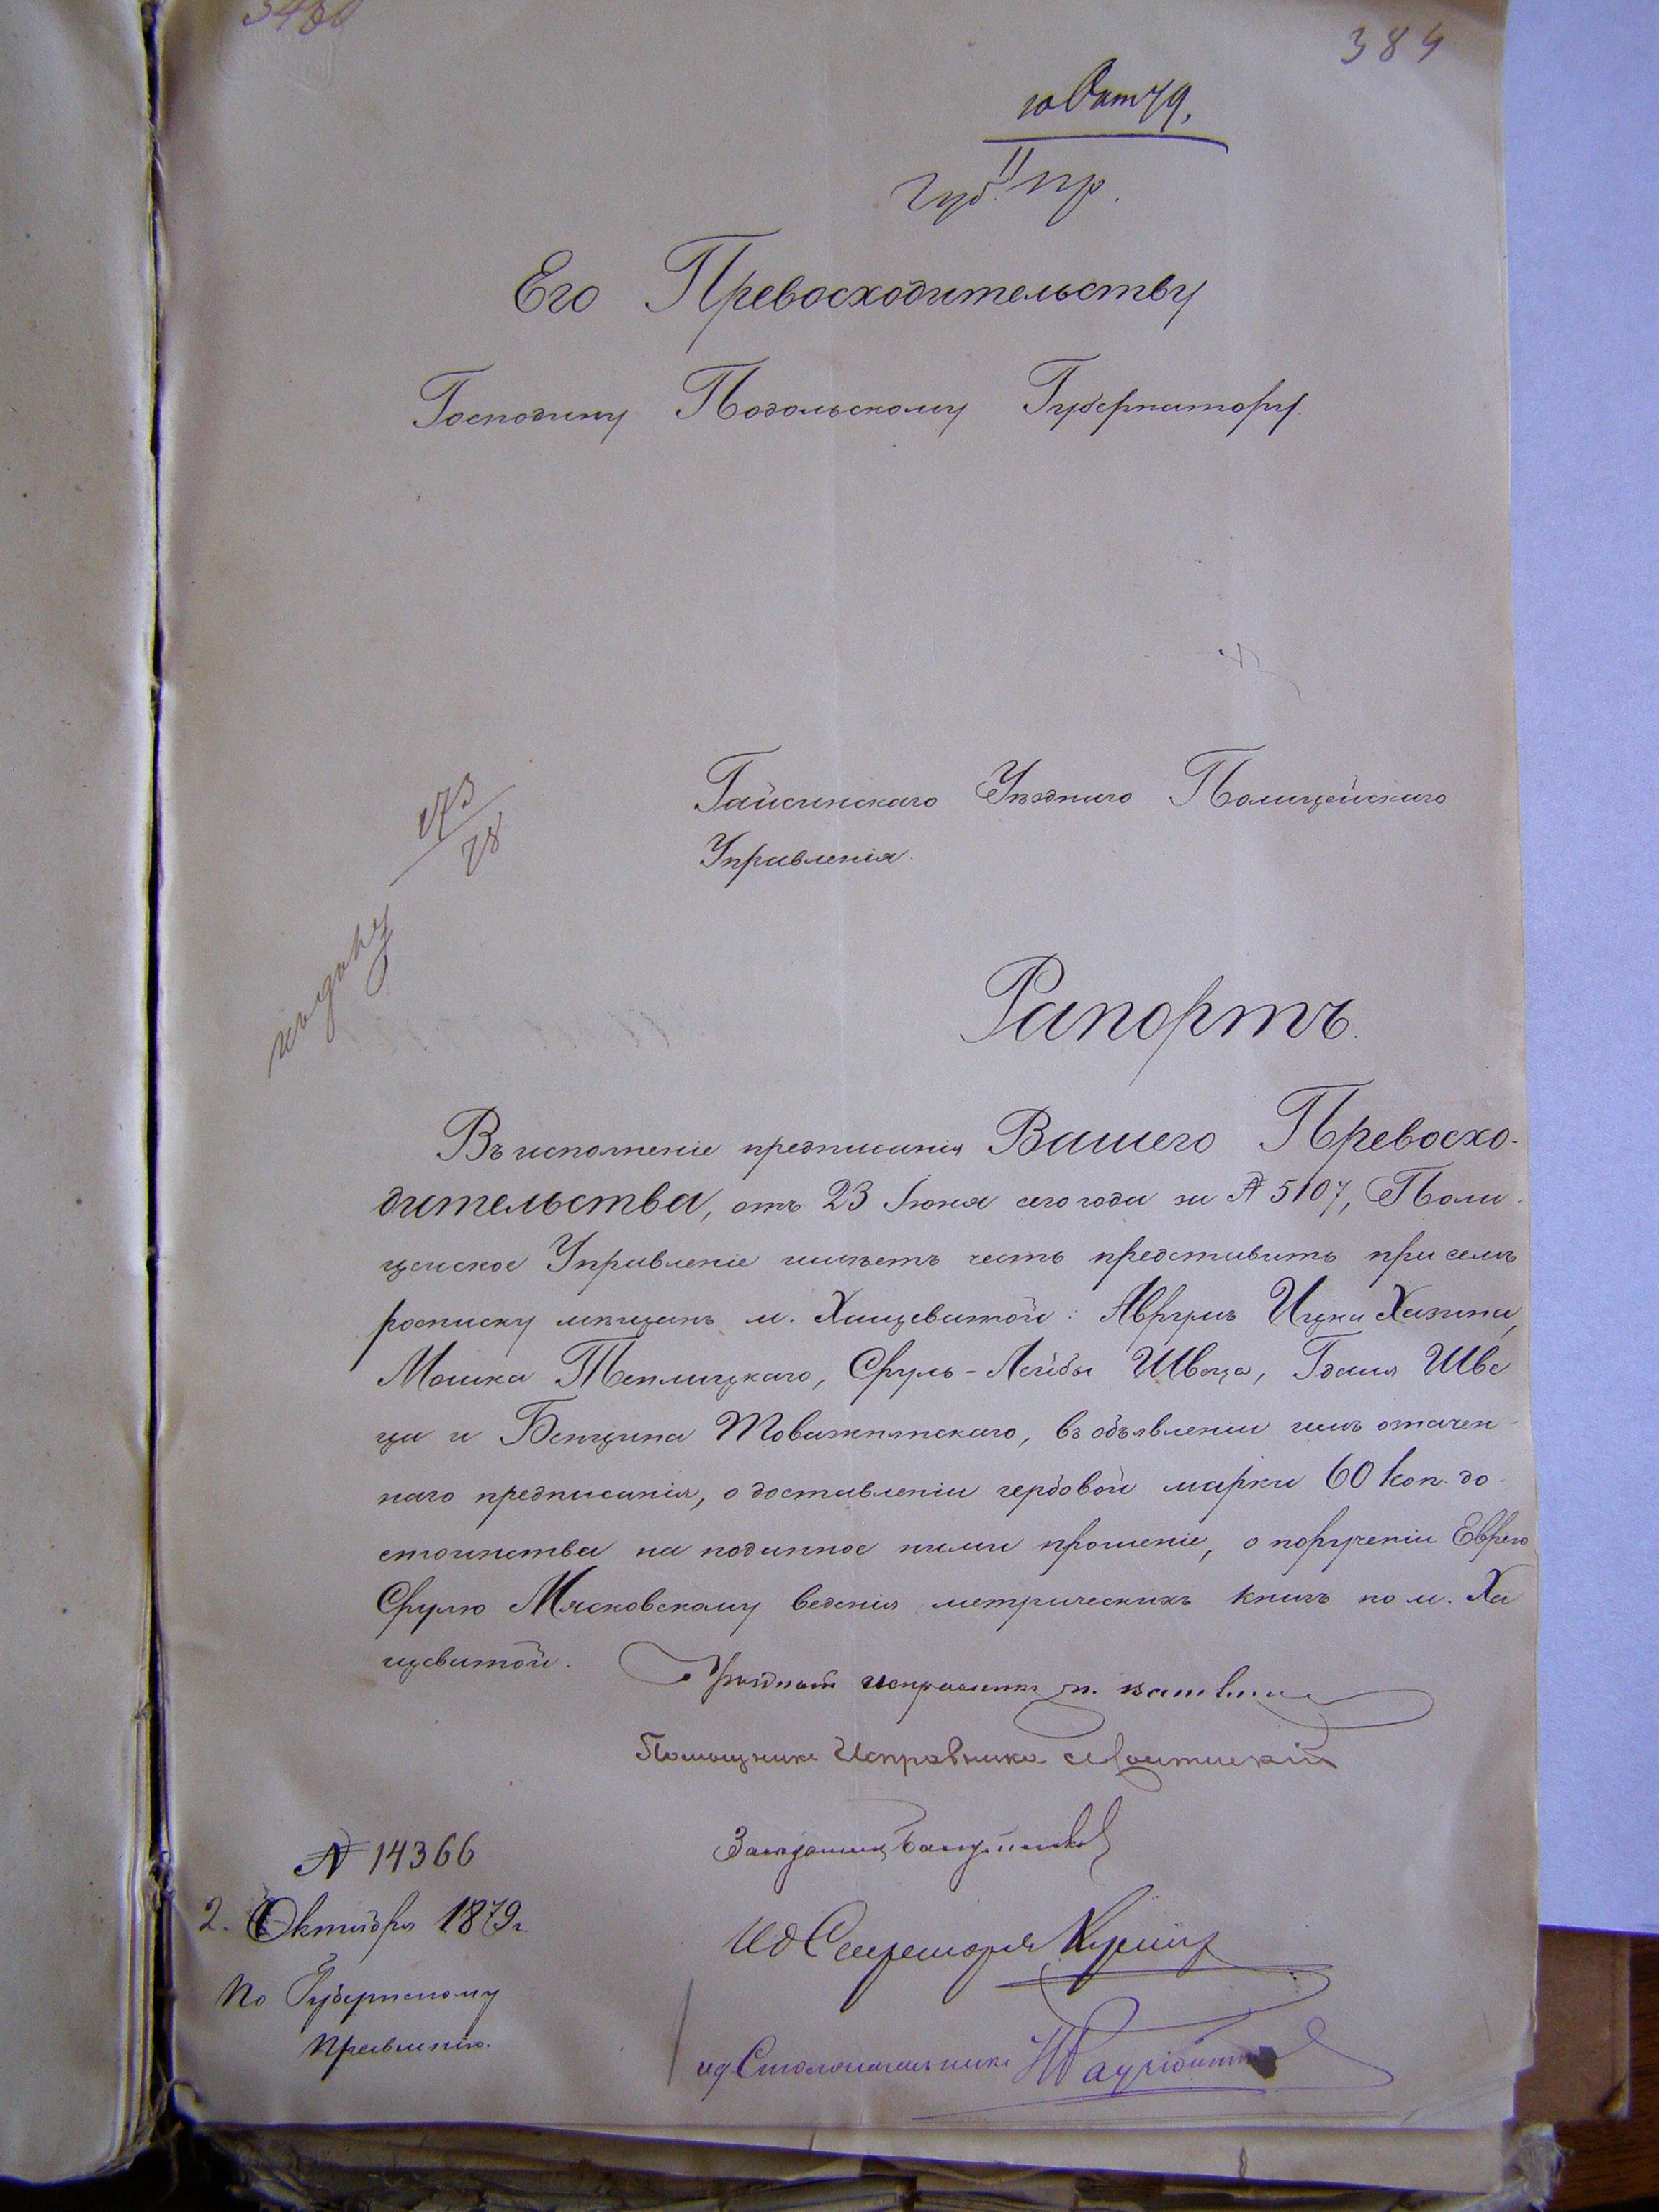 384
10 Окт 79.
II
Губ. Пр.
Его Превосходительству
Господину Подольскому Губернатору.
Гайсинскаго Уѣзднаго Полицейскаго
Управленія.
Рапортъ.
Въ исполненіе предписанія Вашего Превосхо-
дительства, отъ 23 Іюня сего года за № 5107, Поли-
цейское Управленіе имѣетъ честь представить при семъ
росписку мѣщанъ м. Хащеватой: Аврумъ Ицка Хазина,
Мошка Теплицкаго, Сруль-Лейбы Швеца, Гдаля Шве
ца и Бенциона Товажнянскаго, въ объявленіи имъ означен-
наго предписанія, о доставленіи гербовой марки 60 коп. до-
стоинства на поданное ними прошеніе, о порученіи Еврею
Срулю Мясковскому веденія метрическихъ книгъ по м. Ха
щеватой.
Уѣздный Исправникъ
Помощникъ Исправника
Засѣдатель
И д Секретаря
№ 14366
2. Октября 1879 г.
По Губернскому
Правленію.
ид Столоначальника